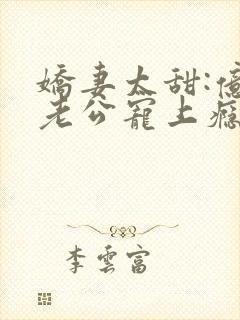 嬌妻太甜:億
老公寵上癮
李雲富